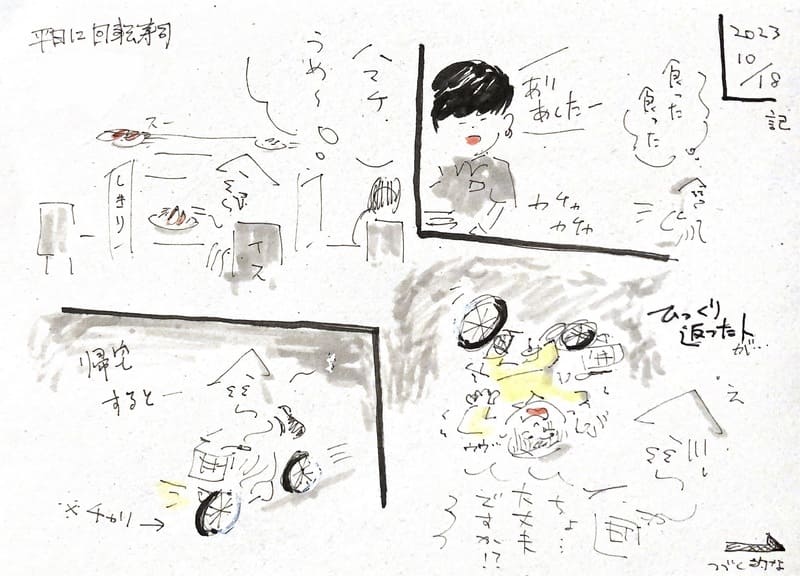 平日に回転寿司
ハマチ
うめ〜
スー
しきり
イス
2023
10/18
記
食った
食った
あり
あしたー
カチャ
カチャ
帰宅
すると
※チャリ→
ひっくり
返った人
が…
え
ウゥ
ちょ…
大丈夫
ですか!?
つづく的な